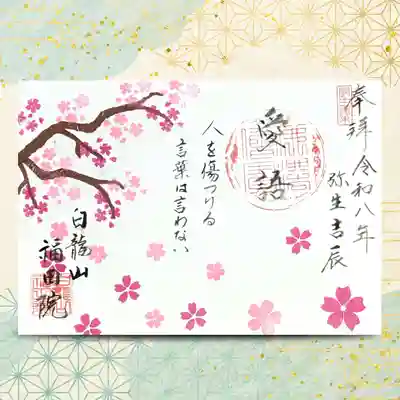 奉拝
令和八年
弥生吉辰
愛語
人を傷つける
言葉は言わない
白龍山
福田院